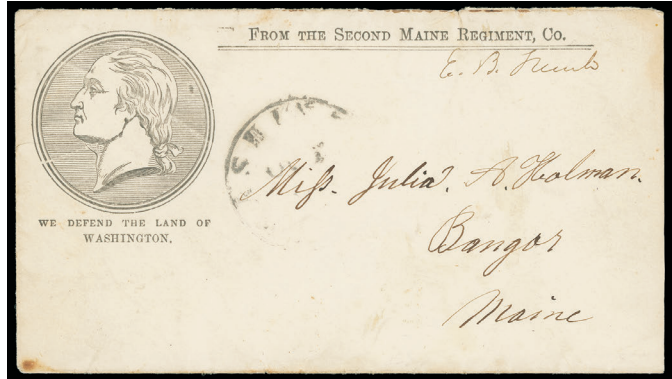 FROM THE SECOND MAINE REGIMENT, CO.
E. B.
WE DEFEND THE LAND OF
WASHINGTON.
Miss. Julia. A. Holman.
Bangor
Maine